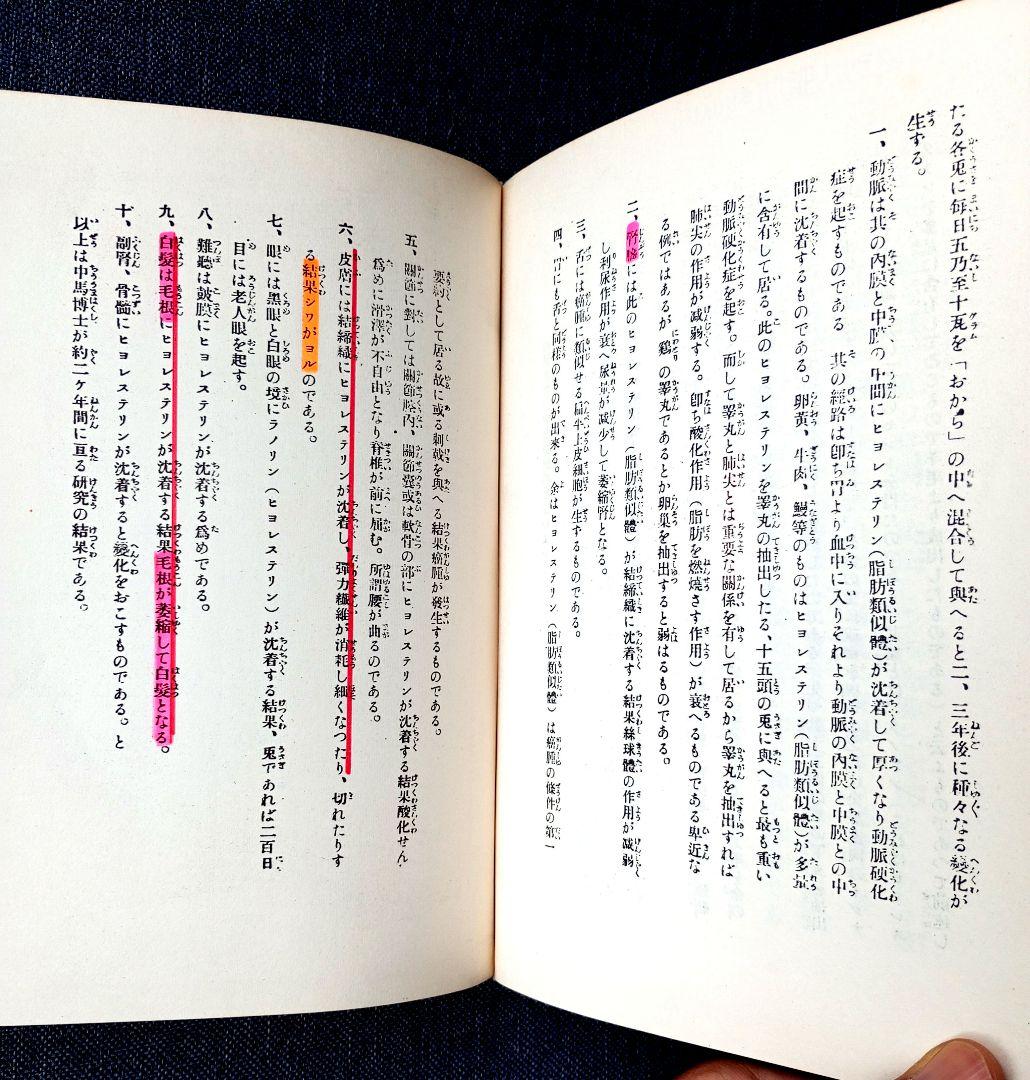 たる各兎に毎日五乃至十瓦を「おから」の中へ混合して與へると二、三年後に種々なる變化が
生ずる。
一、動脈は其の內膜と中膜の中間にヒヨレステリン(脂肪類似體)が沈着して厚くなり動脈硬化
症を起すものである 其の經路は卽ち胃より血中に入りそれより動脈の內膜と中膜との中
間に沈着するものである。卵黃、牛肉、鰻等のものはヒヨレステリン(脂肪類似體)が多量
に含有して居る。此のヒヨレステリンを睾丸の抽出したる、十五頭の兎に與へると最も重い
動脈硬化症を起す。而して睾丸と肺尖とは重要な關係を有して居るから睾丸を抽出すれば
肺尖の作用が減弱する。卽ち酸化作用(脂肪を燃燒さす作用)が衰へるものである卑近な
る例ではあるが 鷄 の睾丸であるとか卵巢を抽出すると弱はるものである。
二、腎臟には此のヒヨレステリン(脂肪類似體)が結締織に沈着する結果絲球體の作用が減弱
し利尿作用が衰へ尿量が減少して萎縮腎となる。
三、舌には癌腫に類似せる扁平上皮細胞が生ずるものである。
四、胃にも舌と同樣のものが出來る。余はヒヨレステリン(脂肪類似體)は癌腫の條件の第一
要約として居る故に或る刺戟を與へる結果癌腫が發生するものである。
五、關節に對しては關節腔內、關節囊或は軟骨の部にヒヨレステリンが沈着する結果酸化せん
爲めに滑澤が不自由となり脊椎が前に屈む。所謂腰が曲るのである。
六、皮膚には結締織にヒヨレステリンが沈着し、彈力纎維が消耗し細くなつたり、切れたりす
る結果シワがヨルのである。
七、眼には黑眼と白眼の境にラノリン(ヒヨレステリン)が沈着する結果、兎であれば二百日
目には老人眼を起す。
八、難聽は皷膜にヒヨレステリンが沈着する爲めである。
九、白髮は毛根にヒヨレステリンが沈着する結果毛根が萎縮して白髮となる。
十、副腎、骨髓にヒヨレステリンが沈着すると變化をおこすものである。と
以上は中馬博士が約二ケ年間に亘る研究の結果である。